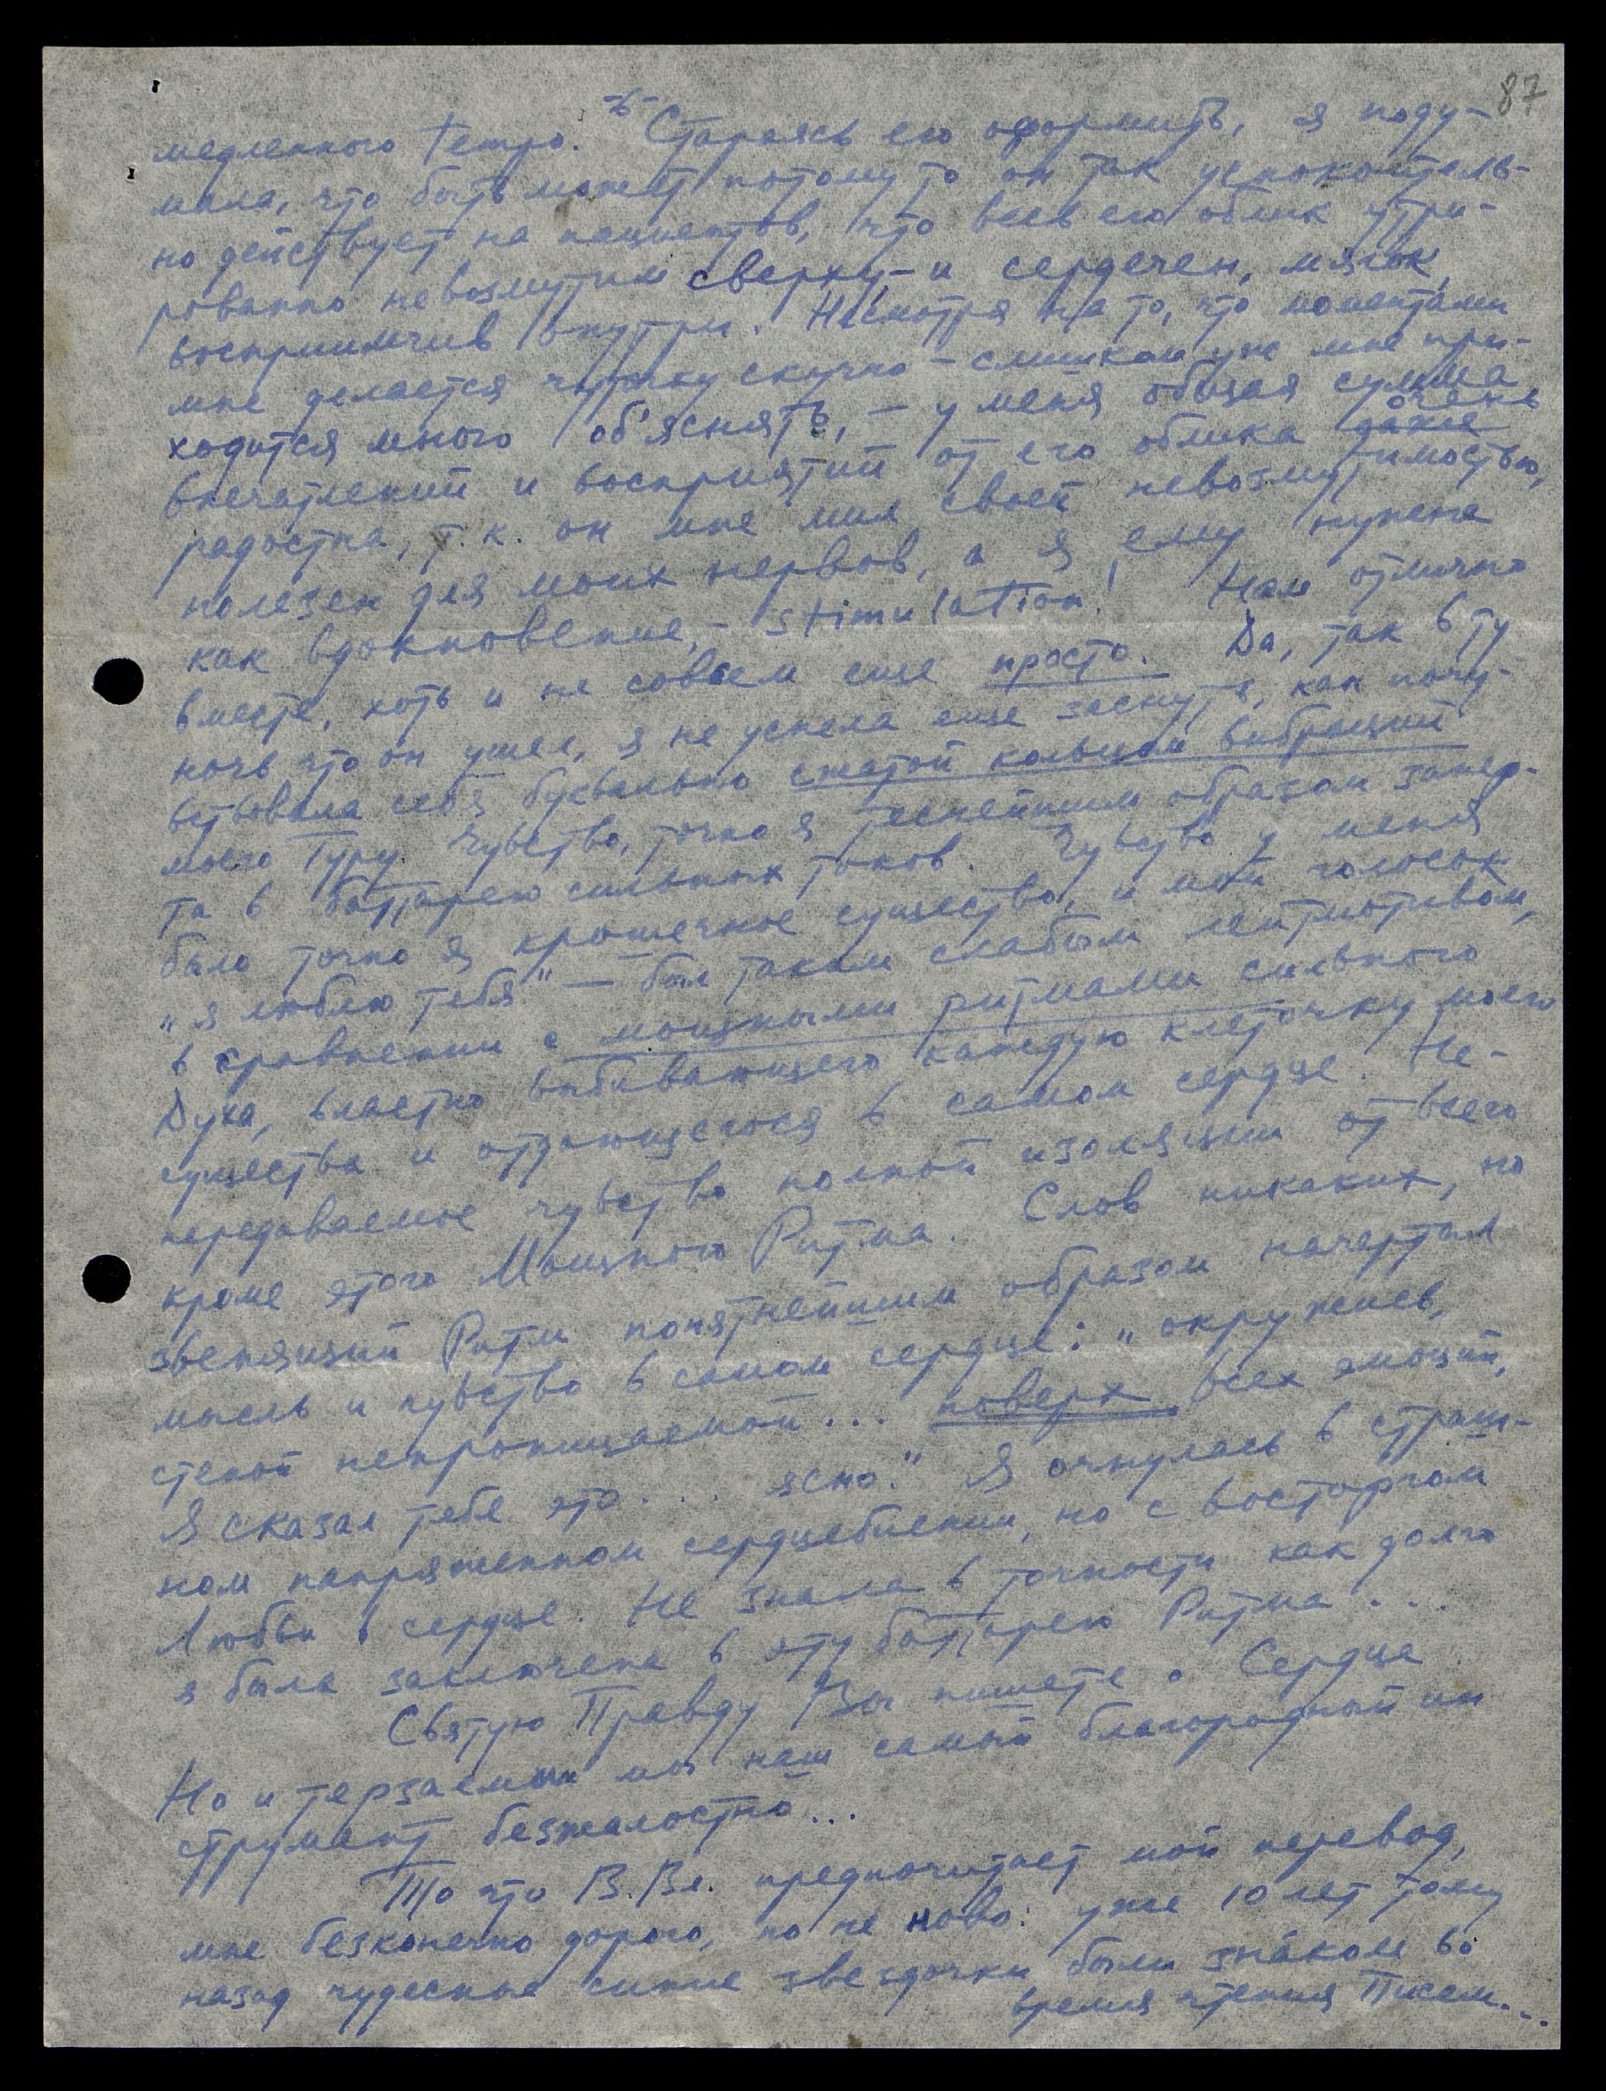 87
-6-
медленного tempo. Стараясь его оформить, я поду-
мала, что быть может потому то он так успокоитель-
но действует на пациентов, что весь его облик утри-
рованно невозмутим сверху, - и сердечен, мягок,
восприимчив внутри. Несмотря на то, что моментами
мне делается чуточку скучно - слишком уж мне при-
ходится много об'яснять, - у меня общая сумма
впечатлений и восприятий от его облика даже очень
радостна, т.к. он мне мил своей невозмутимостью,
полезен для моих нервов, а я ему нужна
как вдохновение, - stimulation! Нам отлично
вместе, хоть и не совсем еще просто. Да, так в ту
ночь что он ушел, я не успела еще заснуть, как почу-
вствовала себя буквально сжатой кольцом вибраций
моего Гуру. Чувство, точно я теснейшим образом запер-
та в баттарею сильных токов. Чувство у меня
было точно я крошечное существо, и мой голосок
„я люблю тебя" — был таким слабым лейтмотивом,
в сравнении с мощными ритмами сильного
Духа, властно выбивающего каждую клеточку моего
существа и отдающегося в самом сердце. Не-
передаваемое чувство полной изоляции от всего
кроме этого Мощного Ритма. Слов никаких, но
звенящий Ритм понятнейшим образом начертал
мысль и чувство в самом сердце: „окружись,
стеной непроницаемой... поверх всех эмоций,
Я сказал тебе это... ясно." Я очнулась в страш-
ном напряженном сердцебиении, но с восторгом
Любви в сердце. Не знала в точности как долго
я была заключена в эту баттарею Ритма...
Святую Правду Вы пишете о Сердце.
Но и терзаем мы наш самый благородный ин
струмент безжалостно...
То что В.Вл. предпочитает мой перевод,
мне безконечно дорого, но не ново: уже 10 лет тому
назад чудесные синие звездочки были знаком во
время чтения Писем...